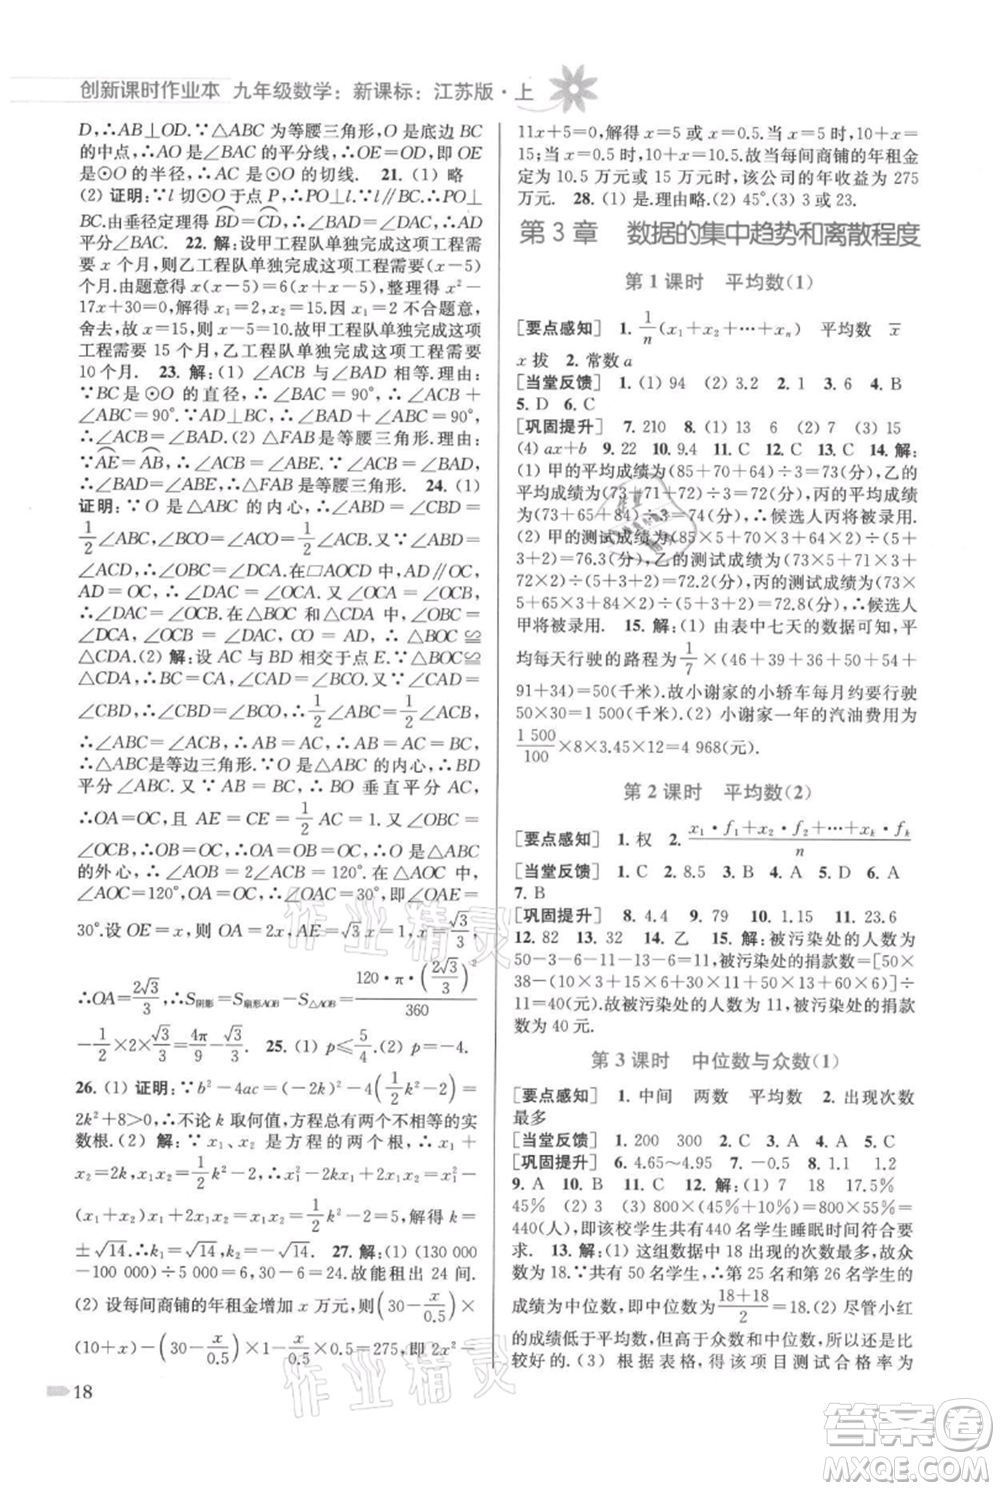 创新课时作业本 九年级数学：新课标：江苏版·上
D,∴AB⊥OD.∵△ABC为等腰三角形,O是底边BC
的中点,∴AO是∠BAC的平分线,∴OE=OD,即OE
是⊙O的半径,∴AC是⊙O的切线. 21. (1) 略
(2) 证明:∵l切⊙O于点P,∴PO⊥l.∵l∥BC,∴PO⊥BC,
由垂径定理得BD=CD,∴∠BAD=∠CAD,即AD
平分∠BAC. 22. 解:设甲工程队单独完成这项工程需
x个月,则乙工程队单独完成这项工程需(x-5)个
月.由题意得x(x-5)=6(x+x-5),整理得x²-
17x+30=0,解得x₁=2,x₂=15.x=2不合题意,
舍去,故x=15,则x-5=10.故甲工程队单独完成这项
工程需要15个月,乙工程队单独完成这项工程需要
10个月. 23. 解:(1) ∠ACB与∠BAD相等.理由:
∵BC是⊙O的直径,∴∠BAC=90°,∴∠ABC+
∠ACB=90°.∵AD⊥BC,∴∠ABC+∠BAD=90°,
∴∠ACB=∠BAD.(2) △FAB是等腰三角形.理由:
∵AE=AB,∴∠ACB=∠ABE.∵∠ACB=∠BAD,
∴∠BAD=∠ABE,∴△FAB是等腰三角形. 24. (1)
证明:∵O是△ABC的内心,∴∠OCA=∠OCB=
1/2∠ACB,∠ABD=1/2∠ABC.又∵∠ABD=
∠ACD,∴∠OBC=∠ACD.∵在□AOCD中,
AD=OC,AD∥OC,∴∠DAC=∠OCA.∵∠OCA=∠OCB,
∴∠DAC=∠OCB.在△OBC和△DCA中,∠OBC=
∠DCA,∠OCB=∠DAC,CO=AD,∴△OBC≌
△DCA.(2) 解:设AC与BD相交于点E.∵△OBC≌
△DCA,∴BC=CA,∴∠ABC=∠BAC.∵∠CAD=
∠CBD,∴∠OCB=∠OBC,∴1/2∠ABC=1/2∠ACB,
∴∠ABC=∠ACB,∴∠ABC=∠ACB=∠BAC,∴△ABC
是等边三角形.∵O是△ABC的内心,∴BO
平分∠ABC,∴BE⊥AC,且AE=CE=1/2AC,
∴OA=OC.∵∠OCB=∠OBC,∴OB=OC,∴O是△ABC
的外心,∴∠AOB=2∠ACB=120°.∵在△AOC中,
∠AOC=120°,OA=OC,OE⊥AC,∴∠OAC=
30°.设OE=x,则OA=2x,∴AE=√3x=√3,∴x=√3/3,
∴OA=2√3/3,∴S阴影=S扇形AOB-S△AOB=120·π·(2√3/3)²/360
-1/2×2×√3/3=4π/9-√3/3. 25. (1) p≤5/4.(2) p=-4.
26. (1) 证明:∵b²-4ac=(-2k)²-4(1/2k²-2)=
2k²+8>0,∴不论k取何值,方程总有两个不相等的实
数根.(2) 解:∵x₁、x₂是方程的两个根,∴x₁+
x₂=2k,x₁x₂=1/2k²-2.∵x₁²-2kx₁+2x₁x₂=5,∴x₁²-
(x₁+x₂)x₁+2x₁x₂=5,∴x₁x₂=5,即1/2k²-2=5,解得k=
±√14,∴k₁=√14,k₂=-√14. 27. 解:(1) (130 000
-100 000)÷5 000=6,30-6=24.故能租出24间.
(2) 设每间商铺的年租金增加x万元,则(30-x/0.5)×
(10+x)-(30-x/0.5)×1-x/0.5×0.5=275,即2x²-
11x+5=0,解得x=5或x=0.5,∴10+x=10+5=15
或10+x=10+0.5=10.5.故当每间商铺的年租金
定为10.5万元或15万元时,该公司的年收益为275
万元. 28. (1) 是.理由略.(2) 45°.(3) 3或23.
第3章 数据的集中趋势和离散程度
第1课时 平均数(1)
[要点感知] 1. 1/n(x₁+x₂+…+xₙ) 平均数 x̄
x拔 2. 常数a
[当堂反馈] 1. (1) 94 (2) 3.2 2. 1 3. 6 4. B
5. D 6. C
[巩固提升] 7. 210 8. (1) 13 6 (2) 7 (3) 15
(4) ax+b 9. 22 10. 9.4 11. B 12. C 13. C 14. 解:
(1) 甲的平均成绩为(85+70+64)÷3=73(分),乙的
平均成绩为(73+71+72)÷3=72(分),丙的平均成绩
为(73+65+84)÷3=74(分),∴候选人丙将被录用.
(2) 甲的测试成绩为(85×5+70×3+64×2)÷(5+
3+2)=76.3(分),乙的测试成绩为(73×5+71×3+
72×2)÷(5+3+2)=72.2(分),丙的测试成绩为(73×
5+65×3+84×2)÷(5+3+2)=72.8(分),∴候选人
甲将被录用. 15. 解:(1) 由表中七天的数据可知,平
均每天行驶的路程为1/7×(46+39+36+50+54+
91+34)=50(千米).故小谢家的小轿车每月约要行驶
50×30=1 500(千米).(2) 小谢家一年的汽油费用为
1 500/100×8×3.45×12=4 968(元).
第2课时 平均数(2)
[要点感知] 1. 权 2. x₁·f₁+x₂·f₂+…+xₖ·fₖ/n
[当堂反馈] 1. C 2. 8.5 3. 4 4. B 5. C 6. A
7. B
[巩固提升] 8. 4.4 9. 79 10. 1.15 11. 23.6
12. 82 13. 32 14. 乙 15. 解:被污染处的人数为
50-3-6-11-13-6=11,被污染处的捐款数=[50×
38-(10×3+15×6+30×11+50×13+60×6)]÷
11=40(元).故被污染处的人数为11,被污染处的捐款
数为40元.
第3课时 中位数与众数(1)
[要点感知] 1. 中间 两数 平均数 2. 出现次数
最多
[当堂反馈] 1. 200 300 2. C 3. C 4. A 5. C
[巩固提升] 6. 4.65~4.95 7. -0.5 8. 1.1 1.2
9. A 10. C 11. C 12. 解:(1) 7 18 17.5%
45% (2) C (3) 800×(45%+10%)=800×55%=
440(人),即该校学生共有440名学生睡眠时间符合要
求. 13. 解:(1) 这组数据中18出现的次数最多,故众
数是18.∵共有50名学生,∴第25名和第26名学生的
成绩为中位数,即中位数为18+18/2=18.(2) 尽管小红
的成绩低于平均数,但高于众数和中位数,所以还是比
较好的.(3) 根据表格,得该项目测试合格率为
18
作业精灵
作业精灵
答案圈
MXQE.COM